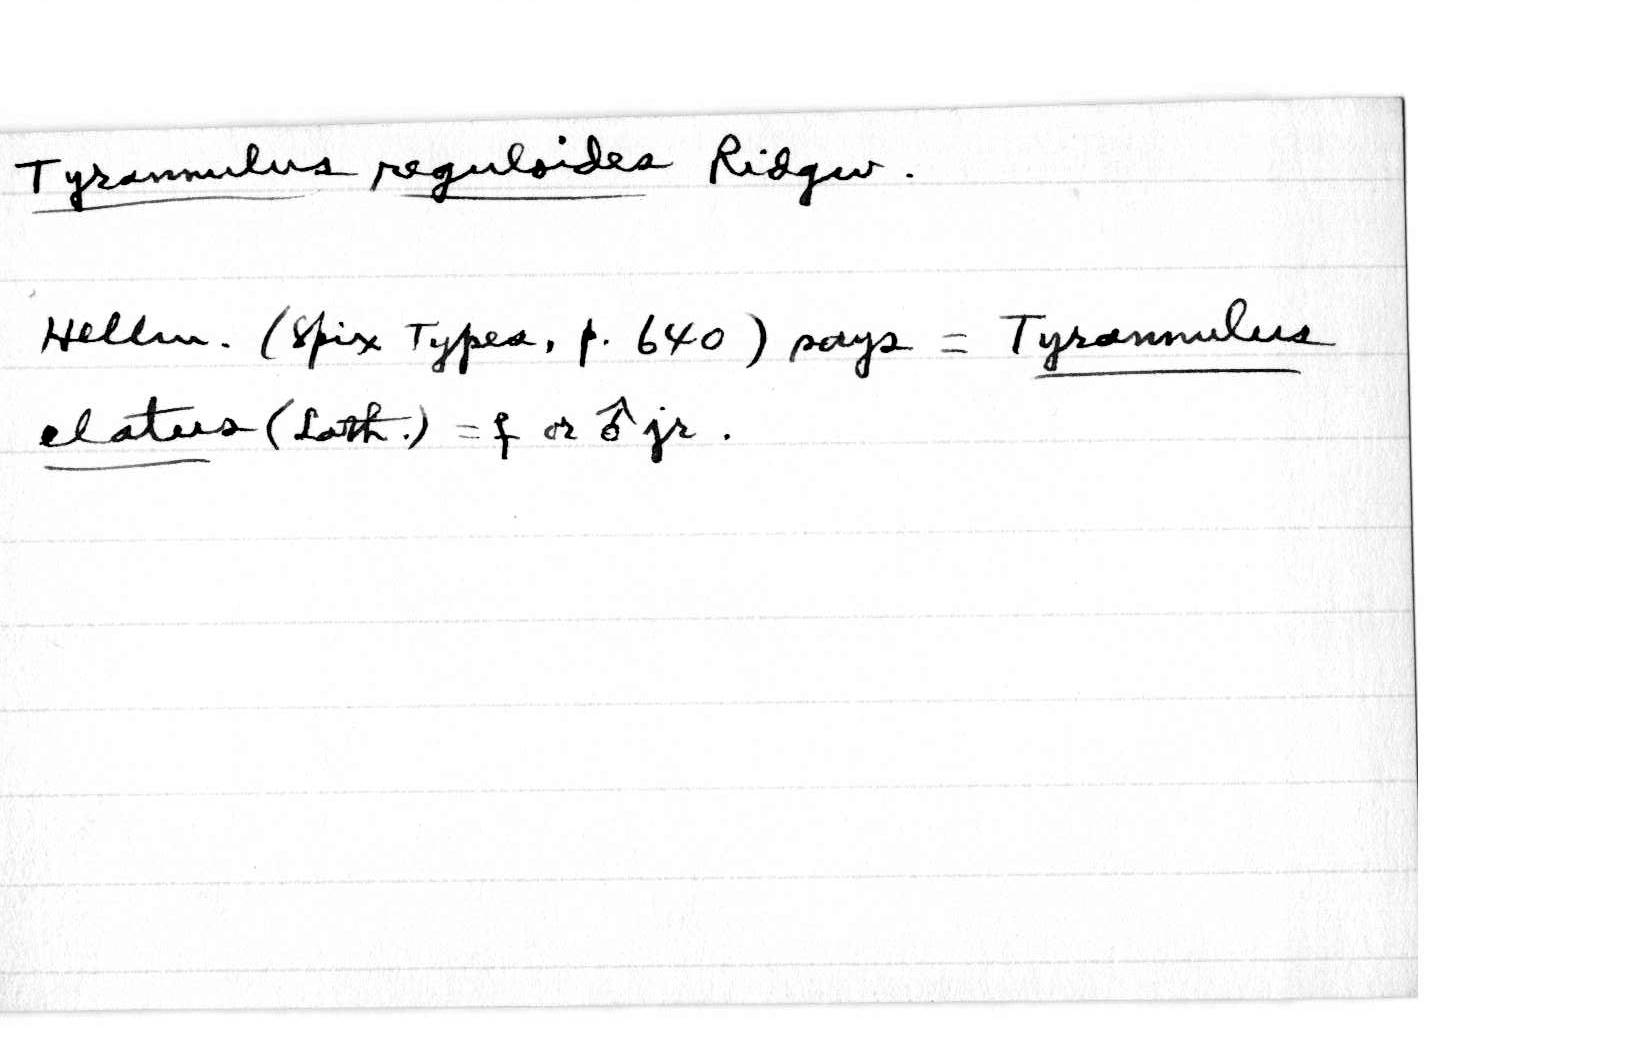 Tyrannulus reguloides Ridgw.
Hellm. (Spix Types, p. 640) says = Tyrannulus
elatus (Lath.) = ♀ or ♂ jr.